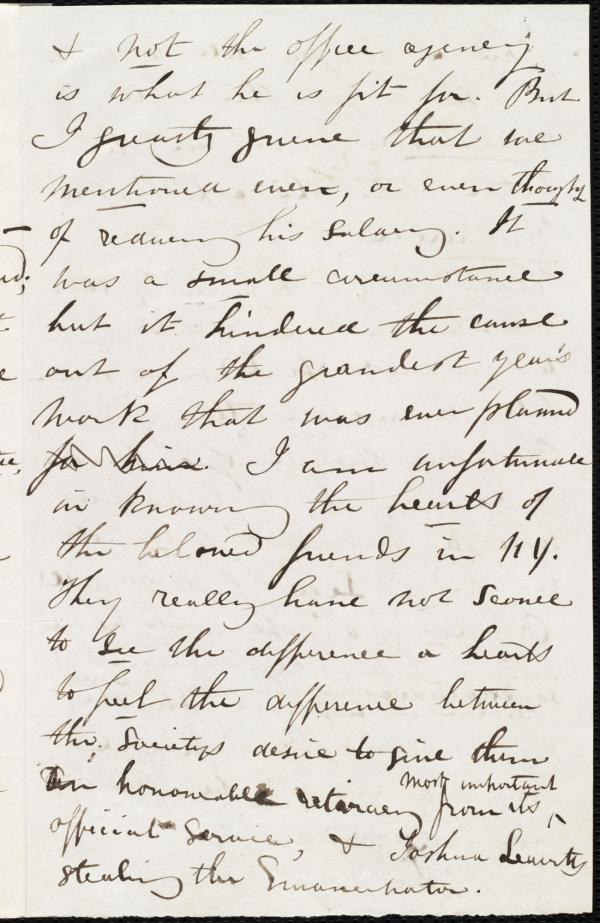 & not the office agency
is what he is fit for. But
I greatly grieve that we
mentioned even, or even thought
of reducing his salary. It
was a small circumstance
but it hindered the cause
out of the grandest year's
work that was ever planned
for him. I am unfortunate
in knowing the hearts of
the beloved friends in NY.
They really have not sense
to see the difference or hearts
to feel the difference between
the Society's desire to give them
an honourable retiracy from its most important
official service, & Joshua Leavitt's
stealing the Emancipator.